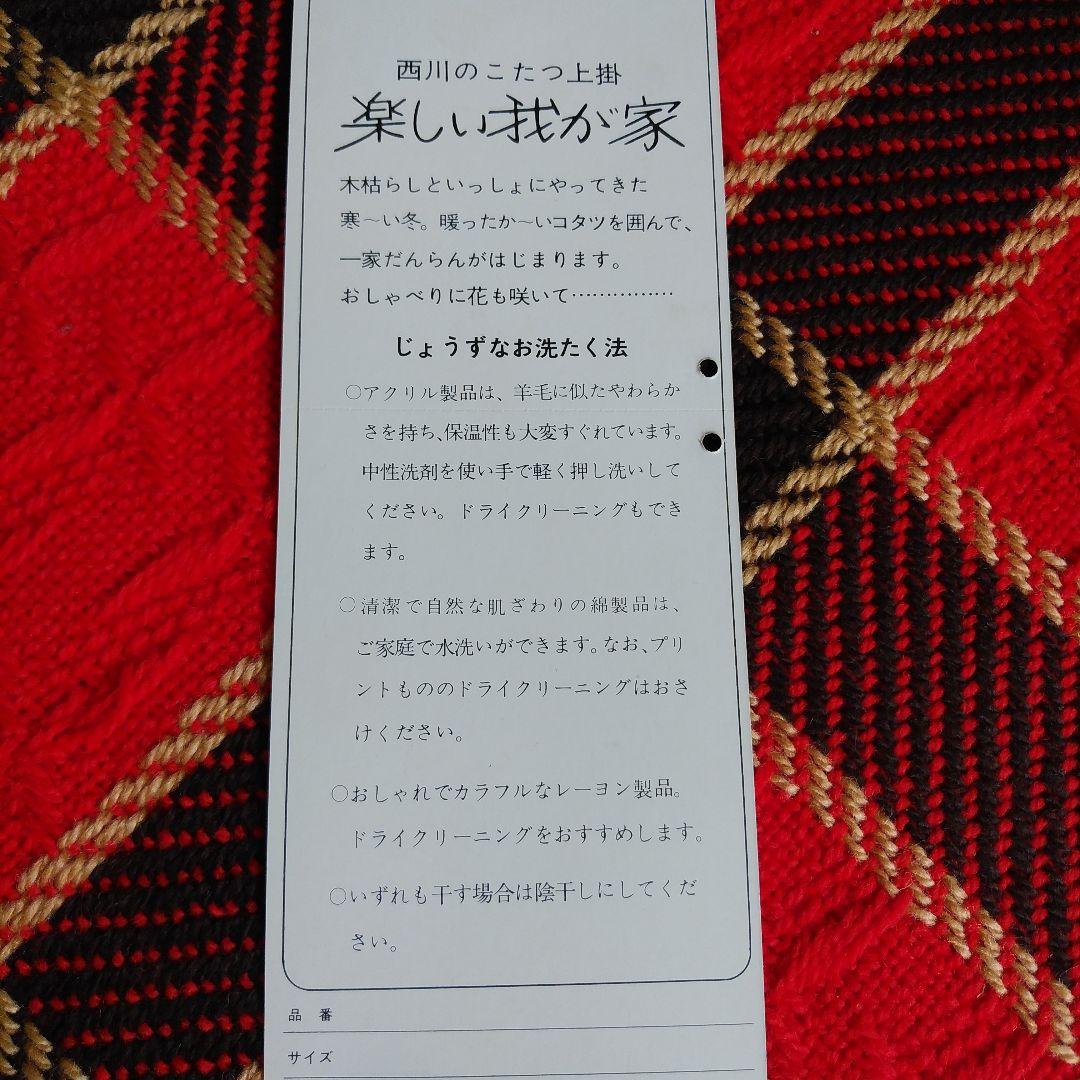 西川のこたつ上掛
楽しい我が家
木枯らしといっしょにやってきた
寒〜い冬。暖ったか〜いコタツを囲んで、
一家だんらんがはじまります。
おしゃべりに花も咲いて……………
じょうずなお洗たく法
○アクリル製品は、羊毛に似たやわらか
さを持ち、保温性も大変すぐれています。
中性洗剤を使い手で軽く押し洗いして
ください。ドライクリーニングもでき
ます。
○清潔で自然な肌ざわりの綿製品は、
ご家庭で水洗いができます。なお、プリ
ントもののドライクリーニングはおさ
けください。
○おしゃれでカラフルなレーヨン製品。
ドライクリーニングをおすすめします。
○いずれも干す場合は陰干しにしてくだ
さい。
品 番
サイズ